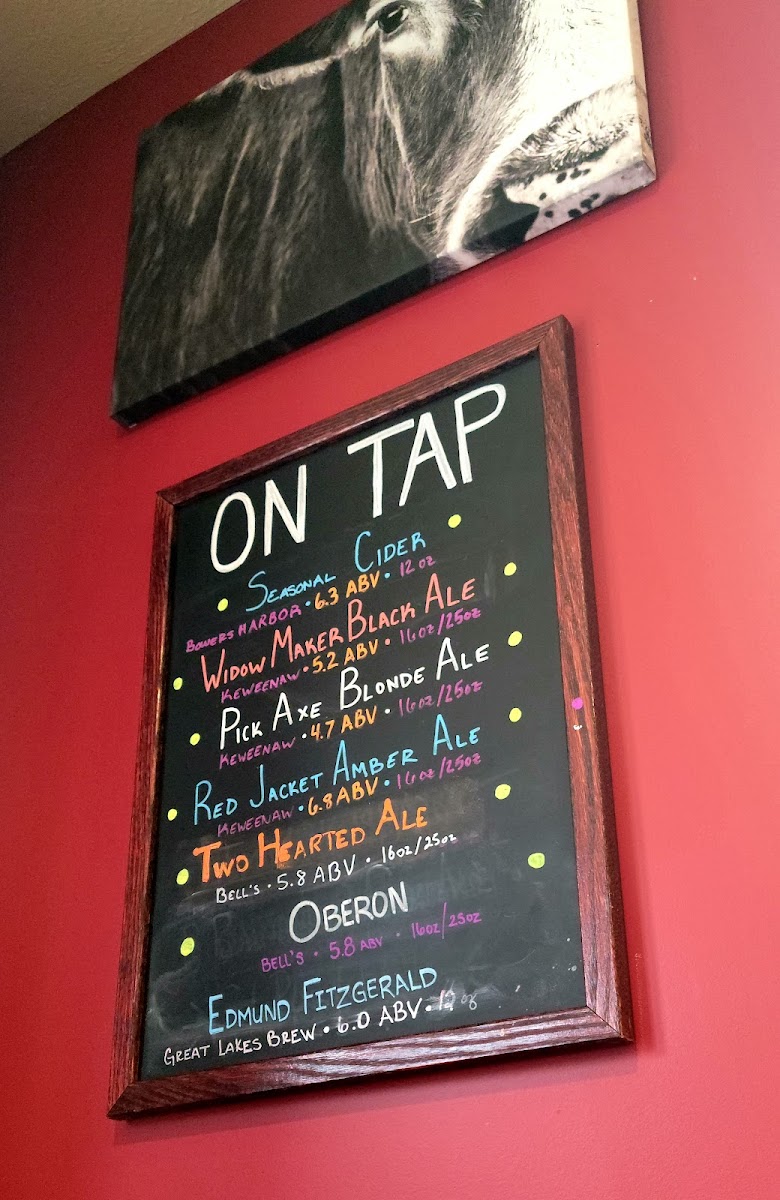 ON TAP
SEASONAL CIDER
BOWERS HARBOR • 6.3 ABV • 12 OZ
WIDOW MAKER BLACK ALE
KEWEENAW • 5.2 ABV • 16OZ/25OZ
PICK AXE BLONDE ALE
KEWEENAW • 4.7 ABV • 16OZ/25OZ
RED JACKET AMBER ALE
KEWEENAW • 6.8 ABV • 16OZ/25OZ
TWO HEARTED ALE
BELL'S • 5.8 ABV • 16OZ/25OZ
OBERON
BELL'S • 5.8 ABV • 16OZ/25OZ
EDMUND FITZGERALD
GREAT LAKES BREW • 6.0 ABV • 12 oz